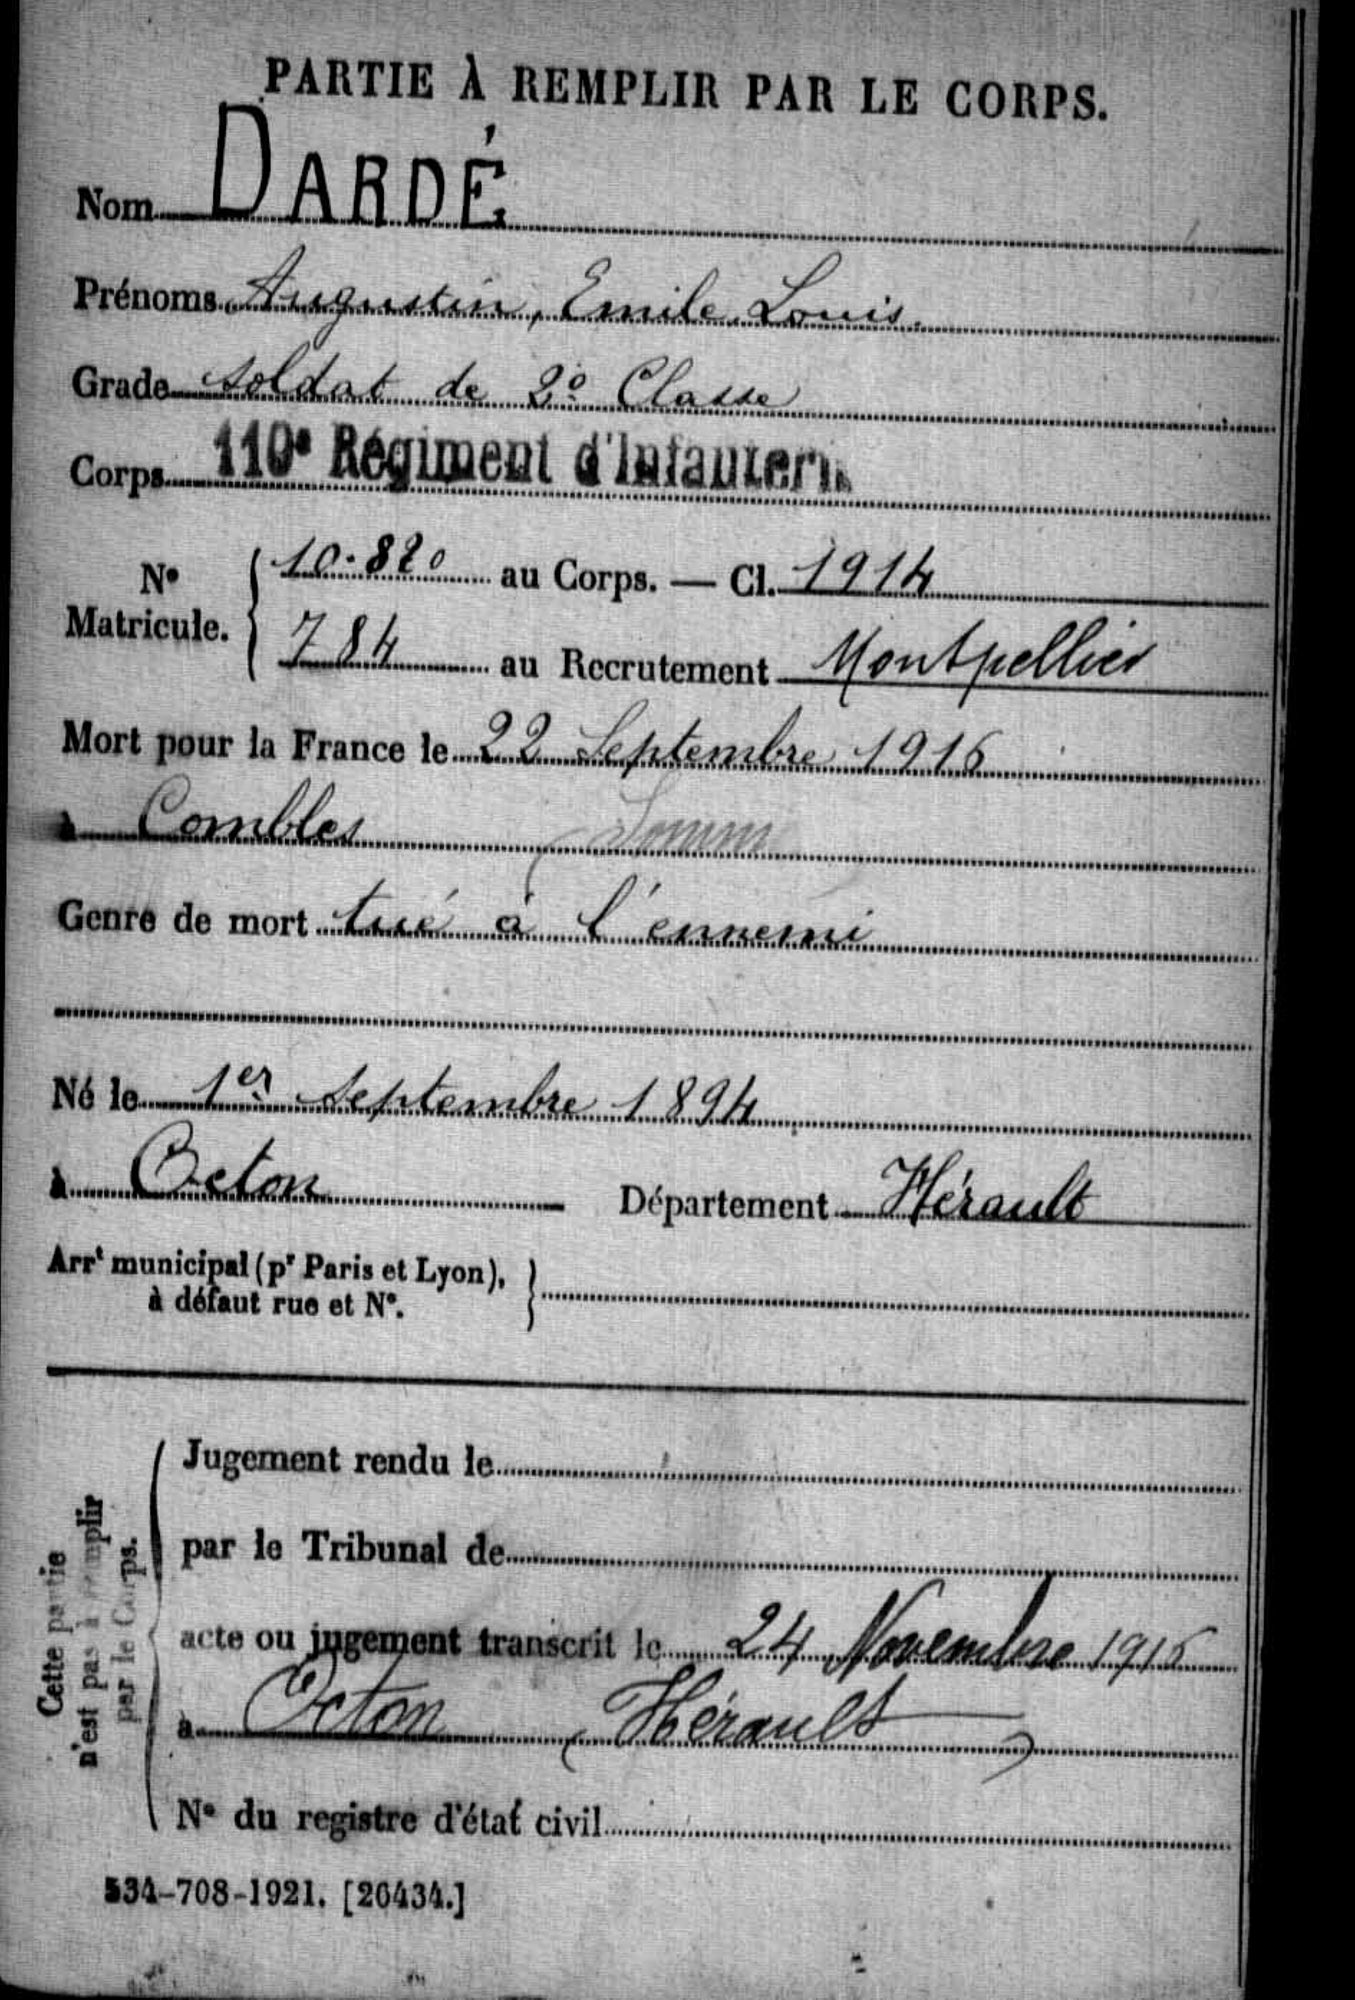 PARTIE À REMPLIR PAR LE CORPS.
Nom DARDÉ
Prénoms Augustin, Emile Louis.
Grade soldat de 2e Classe
Corps 110e Régiment d'Infanterie
No Matricule. 10.820 au Corps. — Cl. 1914
784 au Recrutement Montpellier
Mort pour la France le 22 Septembre 1916
à Combles (Somme
Genre de mort tué à l'ennemi
Né le 1er Septembre 1894
à Octon Département Hérault
Arrt municipal (pr Paris et Lyon),
à défaut rue et No.
Cette partie
n'est pas à remplir
par le Corps.
Jugement rendu le
par le Tribunal de
acte ou jugement transcrit le 24 Novembre 1916
à Octon (Hérault)
No du registre d'état civil
534-708-1921. [26434.]